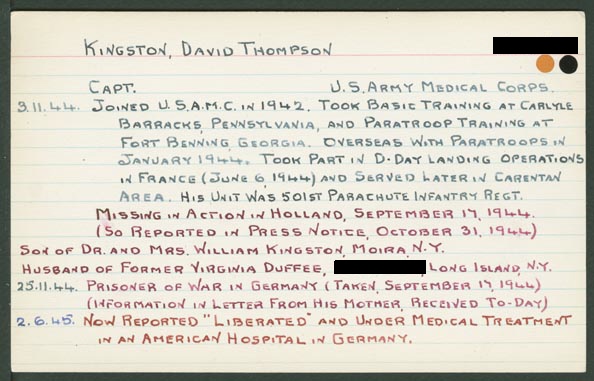 KINGSTON, DAVID THOMPSON
CAPT. U.S. ARMY MEDICAL CORPS.
3.11.44. JOINED U.S.A.M.C. IN 1942. TOOK BASIC TRAINING AT CARLYLE
BARRACKS, PENNSYLVANIA, AND PARATROOP TRAINING AT
FORT BENNING, GEORGIA. OVERSEAS WITH PARATROOPS IN
JANUARY 1944. TOOK PART IN D-DAY LANDING OPERATIONS
IN FRANCE (JUNE 6, 1944) AND SERVED LATER IN CARENTAN
AREA. HIS UNIT WAS 501ST PARACHUTE INFANTRY REGT.
MISSING IN ACTION IN HOLLAND, SEPTEMBER 17, 1944.
(SO REPORTED IN PRESS NOTICE, OCTOBER 31, 1944)
SON OF DR. AND MRS. WILLIAM KINGSTON, MOIRA, N.Y.
HUSBAND OF FORMER VIRGINIA DUFFEE, LONG ISLAND, N.Y.
25.11.44. PRISONER OF WAR IN GERMANY (TAKEN, SEPTEMBER 17, 1944)
(INFORMATION IN LETTER FROM HIS MOTHER, RECEIVED TO-DAY)
2.6.45. NOW REPORTED "LIBERATED" AND UNDER MEDICAL TREATMENT
IN AN AMERICAN HOSPITAL IN GERMANY.